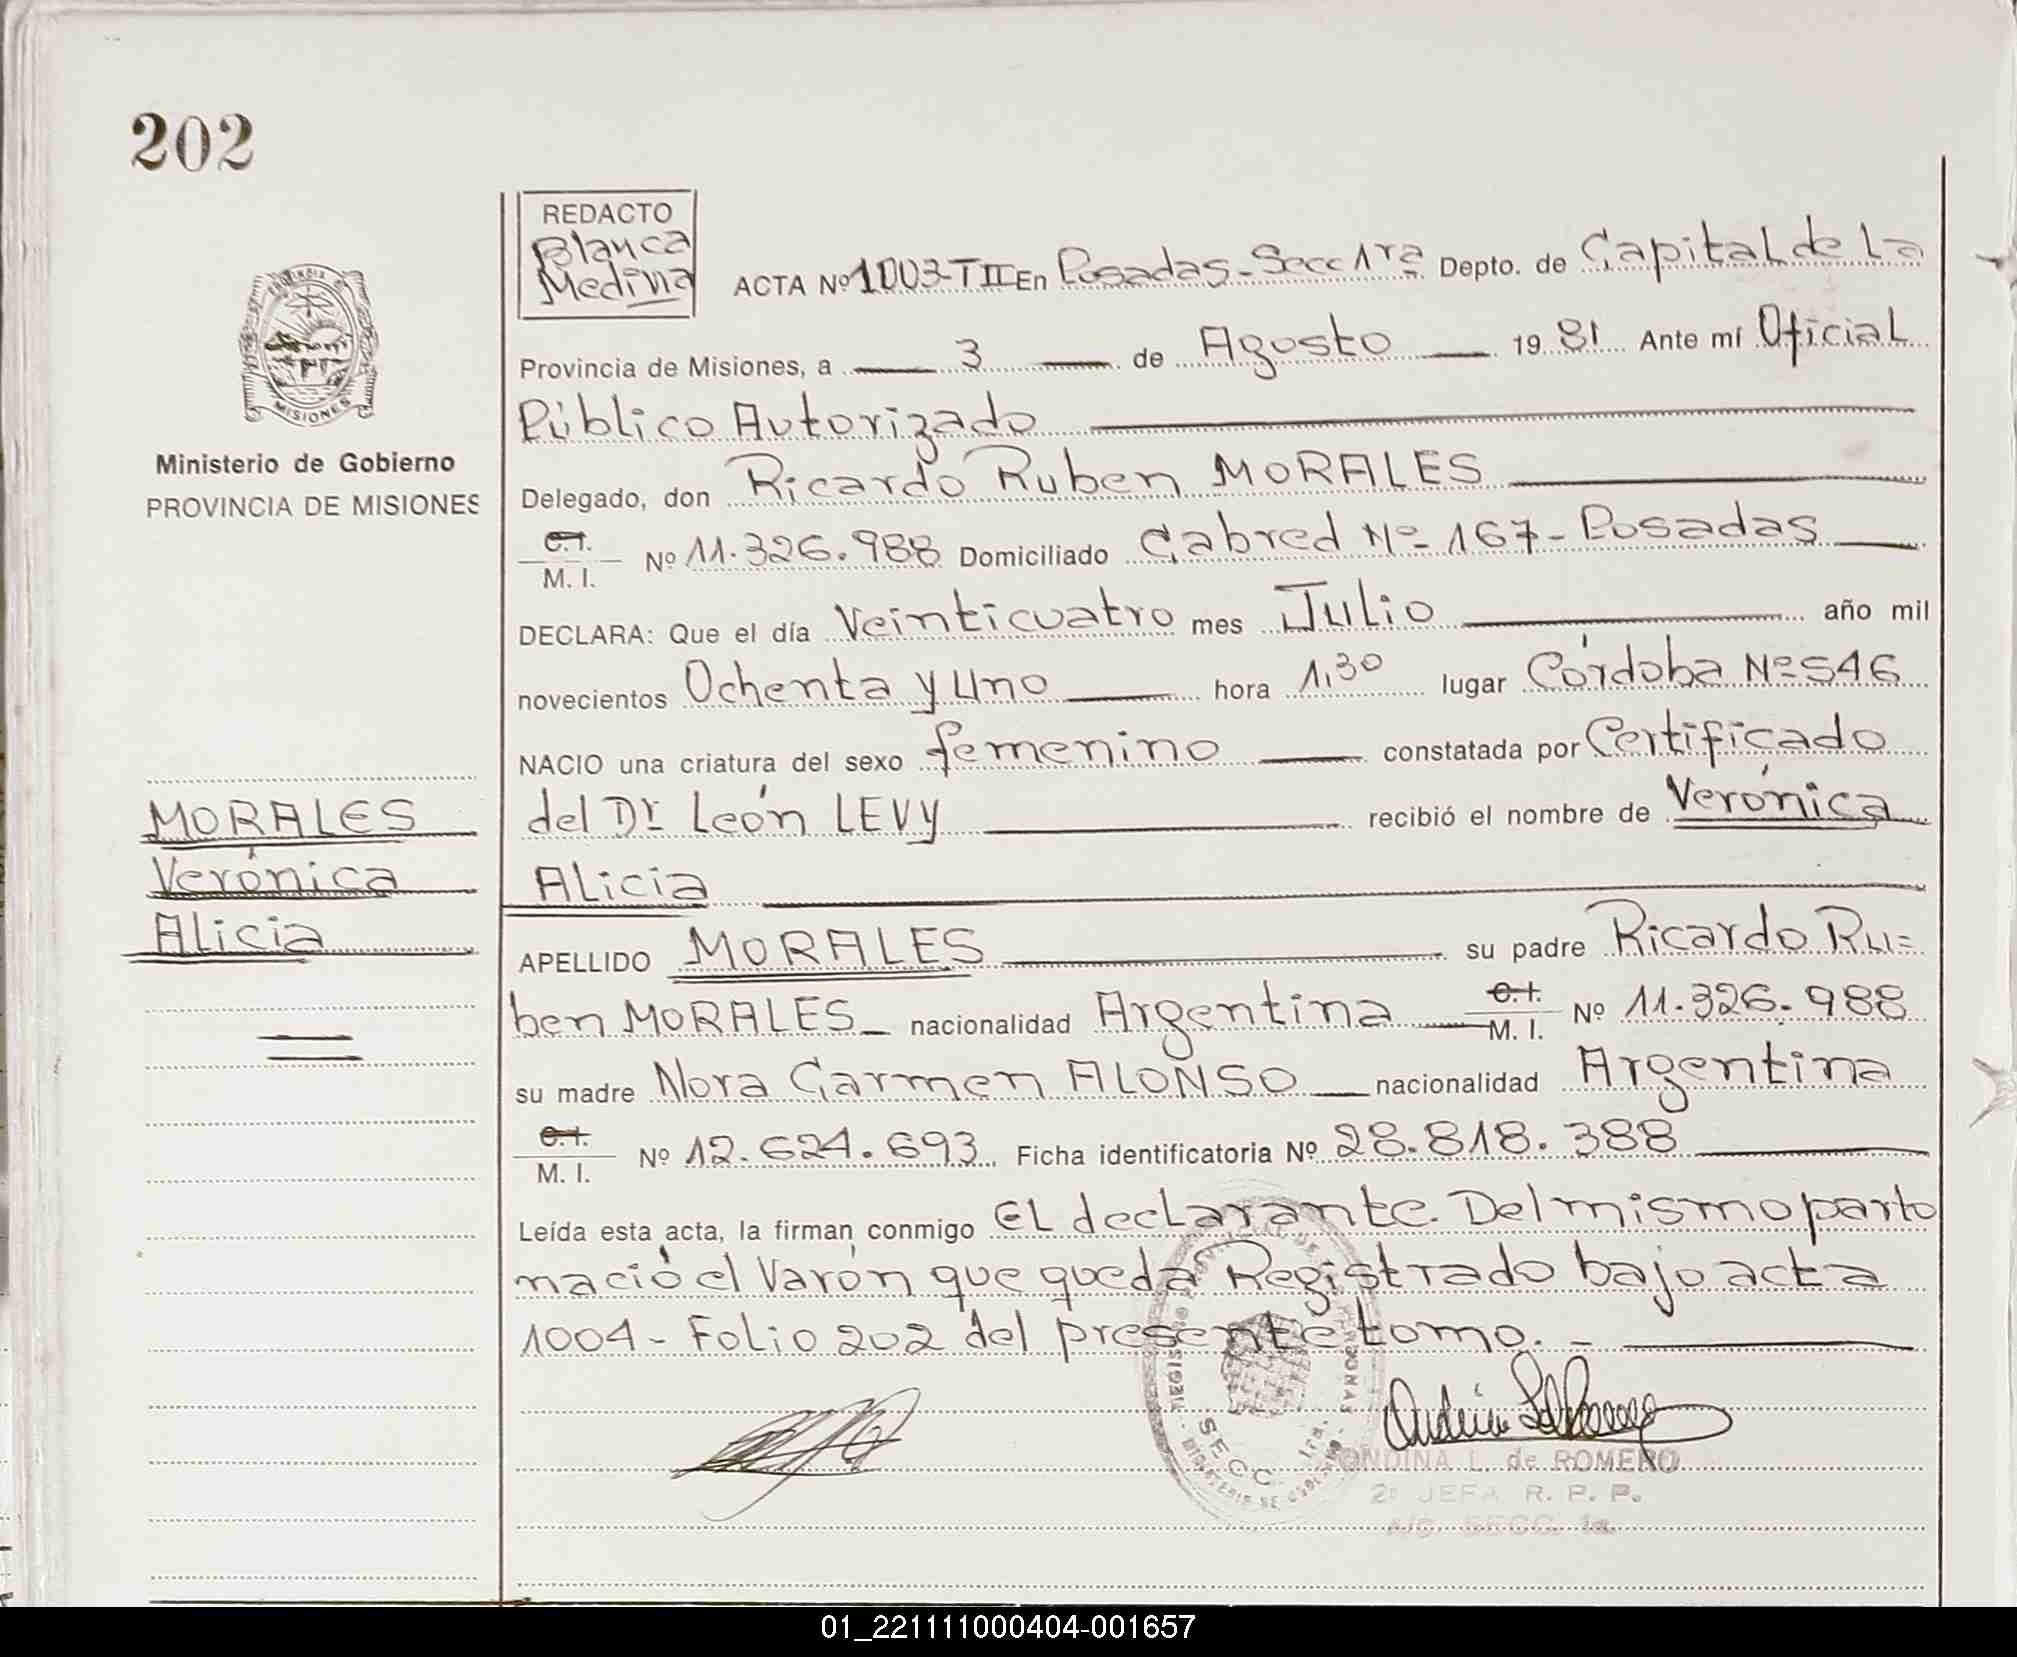 202
REDACTO
Blanca
Medina
ACTA Nº 1003-TII En Posadas-Secc 1ra Depto. de Capital de La
Provincia de Misiones, a 3 de Agosto 1981 Ante mí Oficial
Público Autorizado
Delegado, don Ricardo Ruben MORALES
C.I.
M. I. Nº 11.326.988 Domiciliado Cabred Nº 167-Posadas
DECLARA: Que el día Veinticuatro mes Julio año mil
novecientos Ochenta y Uno hora 1,30 lugar Córdoba Nº 546
NACIO una criatura del sexo femenino constatada por Certificado
del Dr León LEVY recibió el nombre de Verónica
Alicia
APELLIDO MORALES su padre Ricardo Ru=
ben MORALES nacionalidad Argentina C.I. M. I. Nº 11.326.988
su madre Nora Carmen ALONSO nacionalidad Argentina
C.I.
M. I. Nº 12.624.693 Ficha identificatoria Nº 28.818.388
Leída esta acta, la firman conmigo EL declarante. Del mismo parto
nació el Varón que queda Registrado bajo acta
1004 - Folio 202 del presente tomo. -
MISIONES
Ministerio de Gobierno
PROVINCIA DE MISIONES
MORALES
Verónica
Alicia
SECC. 1ra.
ONDINA L. de ROMERO
2º JEFA R. P. P.
A/C. SECC. 1a.
01_221111000404-001657